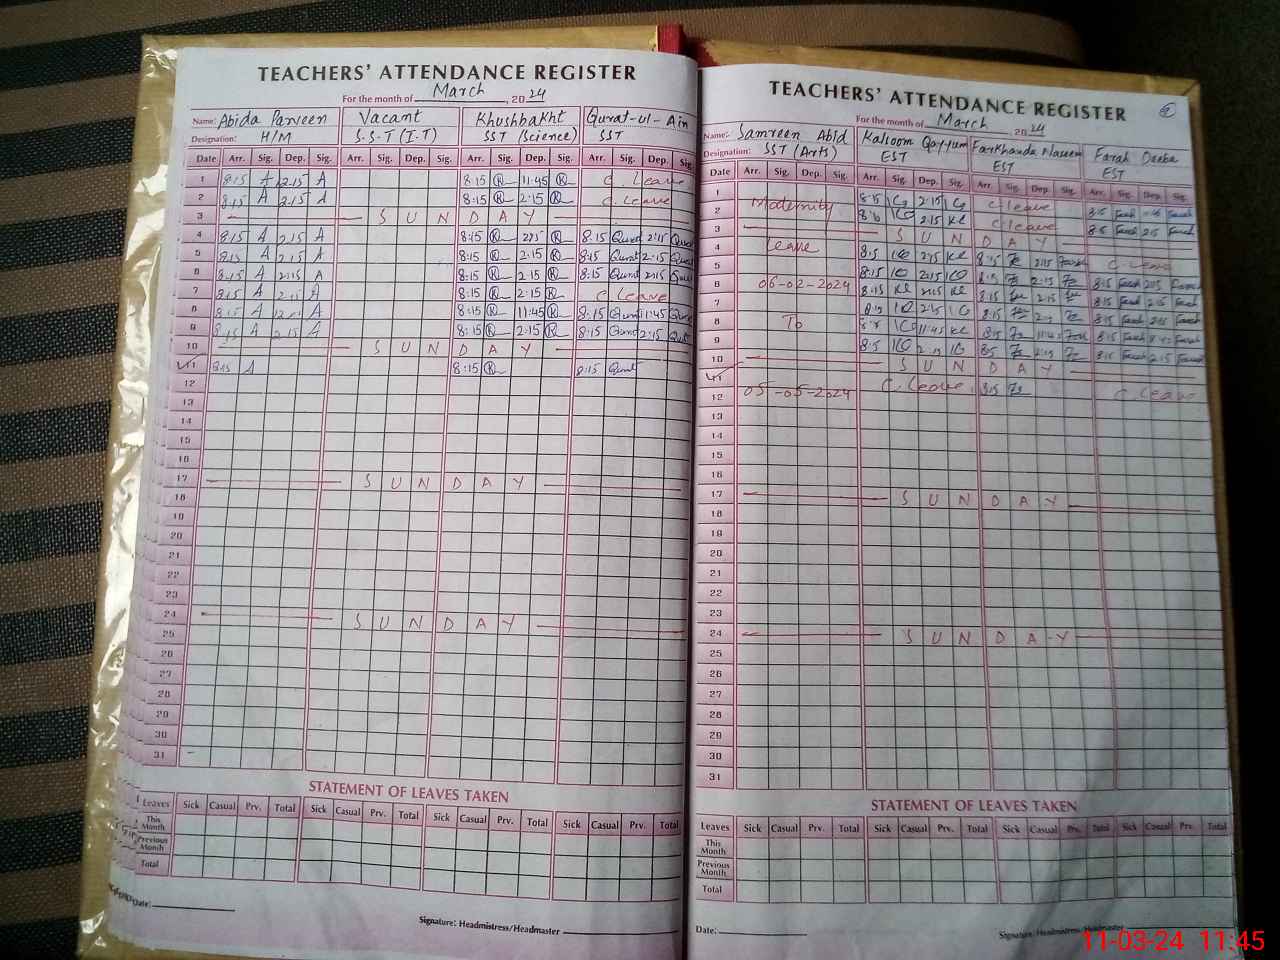 TEACHERS' ATTENDANCE REGISTER
For the month of March, 2024
Name: Abida Parveen Vacant Khushbakht Qurat-ul-Ain
Designation: H/M S.S.T (I.T) SST (Science) SST
Date Arr. Sig. Dep. Sig. Arr. Sig. Dep. Sig. Arr. Sig. Dep. Sig. Arr. Sig. Dep. Sig.
1 8:15 A 12:15 A 8:15 K 11:45 K C. Leave
2 8:15 A 2:15 A 8:15 K 2:15 K C. Leave
3 SUNDAY
4 8:15 A 2:15 A 8:15 K 8:15 Qurat 2:15 Qurat
5 8:15 A 2:15 A 8:15 K 2:15 K 8:15 Qurat 2:15 Qurat
6 8:15 A 2:15 A 8:15 K 2:15 K 8:15 Qurat 2:15 Qurat
7 8:15 A 2:15 A 8:15 K 2:15 K C Leave
8 8:15 A A 8:15 K 11:45 K 8:15 Qurat 11:45 Qurat
9 8:15 A 2:15 A 8:15 K 2:15 K 8:15 Qurat 2:15 Qurat
10 SUNDAY
11 8:15 A 8:15 K 8:15 Qurat
12
13
14
15
16
17 SUNDAY
18
19
20
21
22
23
24 SUNDAY
25
26
27
28
29
30
31
STATEMENT OF LEAVES TAKEN
Leaves Sick Casual Prv. Total Sick Casual Prv. Total Sick Casual Prv. Total Sick Casual Prv. Total
This Month
Previous Month
Total
Date:
Signature: Headmistress/Headmaster
TEACHERS' ATTENDANCE REGISTER
For the month of March, 2024
Name: Samreen Abid Kalsoom Qayyum Farkhanda Naseem Farah Deeba
Designation: SST (Arts) EST EST EST
Date Arr. Sig. Dep. Sig. Arr. Sig. Dep. Sig. Arr. Sig. Dep. Sig. Arr. Sig. Dep. Sig.
1 Maternity 8:15 2:15 C leave 8:15 Farah Farah
2 8:15 2:15 C leave 8:15 Farah 2:15 Farah
3 SUNDAY
4 Leave 8:15 2:15 8:15 2:15 C. Leave
5 8:15 2:15 8:15 2:15 8:15 Farah 2:15 Farah
6 06-02-2024 8:15 2:15 8:15 2:15 8:15 Farah 2:15 Farah
7 8:15 2:15 8:15 2:15 8:15 Farah 2:15 Farah
8 To 11:45 8:15 11:45 8:15 Farah Farah
9 8:15 2:15 8:15 2:15 8:15 Farah 2:15 Farah
10 SUNDAY
11 C. Leave 8:15 C. Leave
12 05-05-2024
13
14
15
16
17 SUNDAY
18
19
20
21
22
23
24 SUNDAY
25
26
27
28
29
30
31
STATEMENT OF LEAVES TAKEN
Leaves Sick Casual Prv. Total Sick Casual Prv. Total Sick Casual Prv. Total Sick Casual Prv. Total
This Month
Previous Month
Total
Date:
Signature: Headmistress/Headmaster
11-03-24 11:45